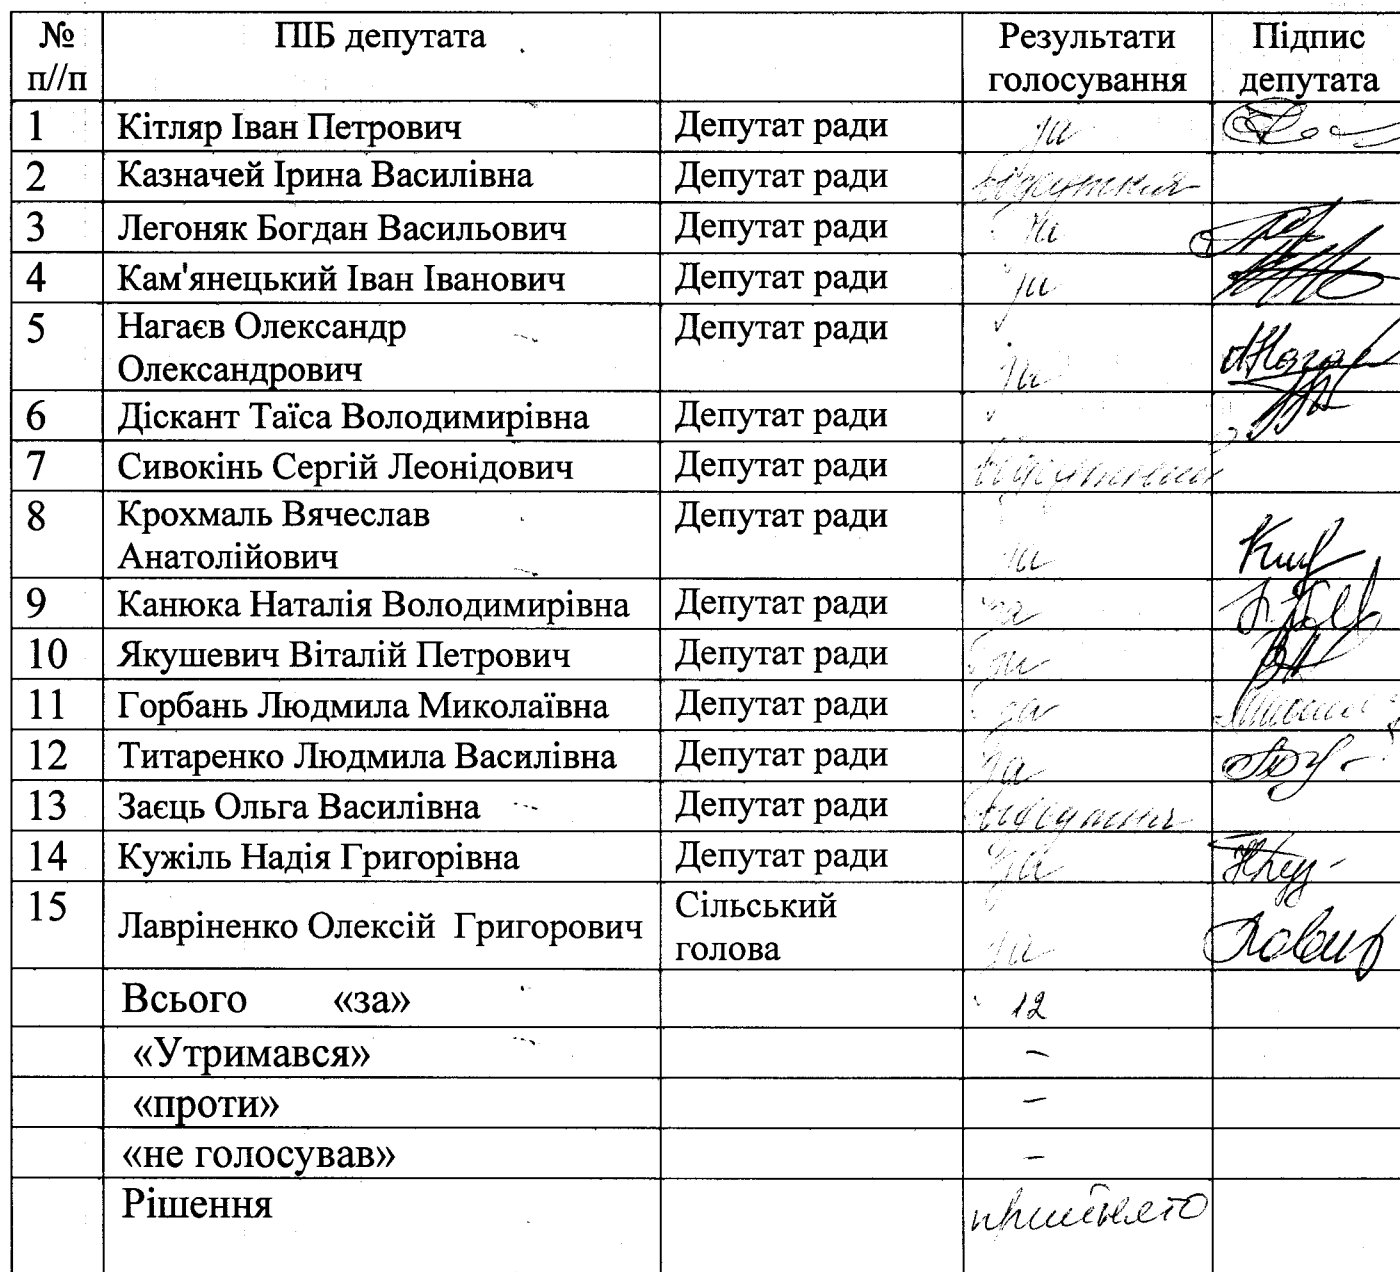 № ПІБ депутата Результати Підпис
п//п голосування депутата
1 Кітляр Іван Петрович Депутат ради за
2 Казначей Ірина Василівна Депутат ради відсутня
3 Легоняк Богдан Васильович Депутат ради за
4 Кам'янецький Іван Іванович Депутат ради за
5 Нагаєв Олександр Депутат ради
Олександрович за
6 Діскант Таїса Володимирівна Депутат ради
7 Сивокінь Сергій Леонідович Депутат ради відсутній
8 Крохмаль Вячеслав Депутат ради
Анатолійович за
9 Канюка Наталія Володимирівна Депутат ради за
10 Якушевич Віталій Петрович Депутат ради за
11 Горбань Людмила Миколаївна Депутат ради за
12 Титаренко Людмила Василівна Депутат ради за
13 Заєць Ольга Василівна Депутат ради відсутня
14 Кужіль Надія Григорівна Депутат ради за
15 Сільський
Лавріненко Олексій Григорович голова за
Всього «за» 12
«Утримався» –
«проти» –
«не голосував» –
Рішення прийнято